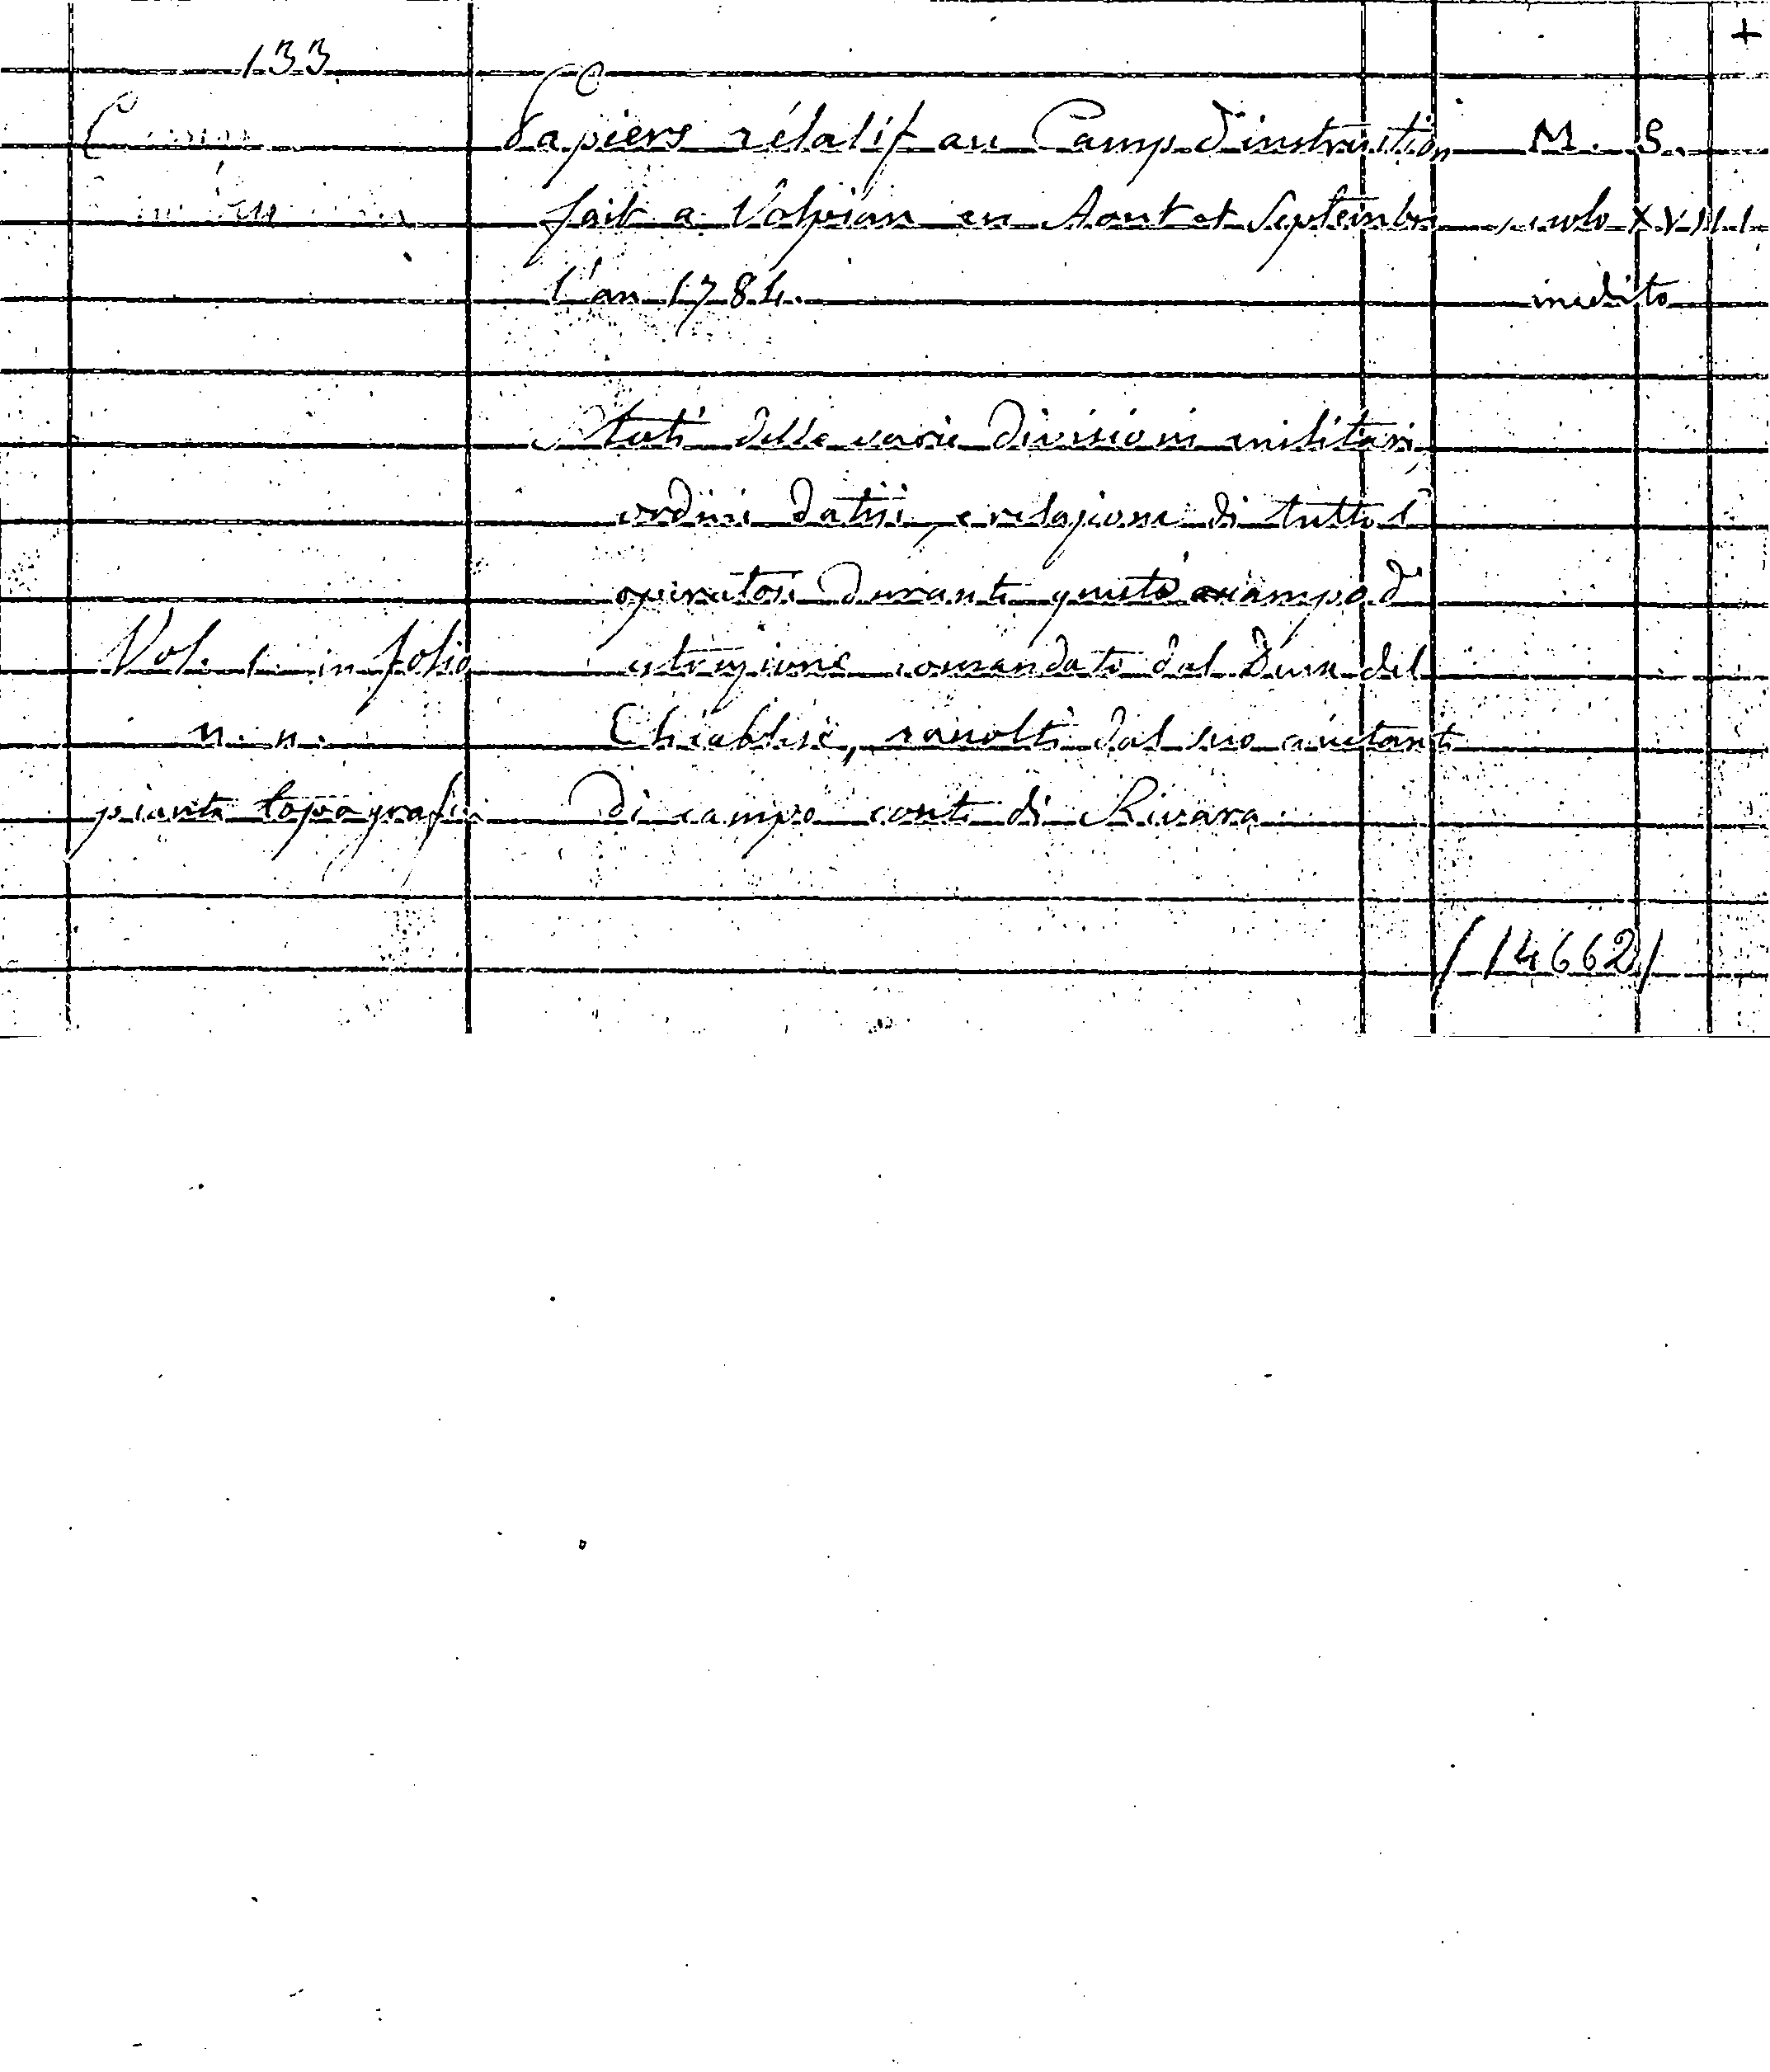 +
133
Papiers rélatif au Camp d'instruction M. S.
fait a Volpian en Aout et Septembre secolo XVIII
l'an 1784. inedito
Stati delle varie divisioni militari,
ordini datisi, e relazione di tutto l'
operatosi durante questo accampo d'
Vol. 1 in folio istruzione comandato dal Duca del
n. n. Chiablese, raccolti dal suo aiutante
piante topografiche di campo conte di Rivara
(14662)